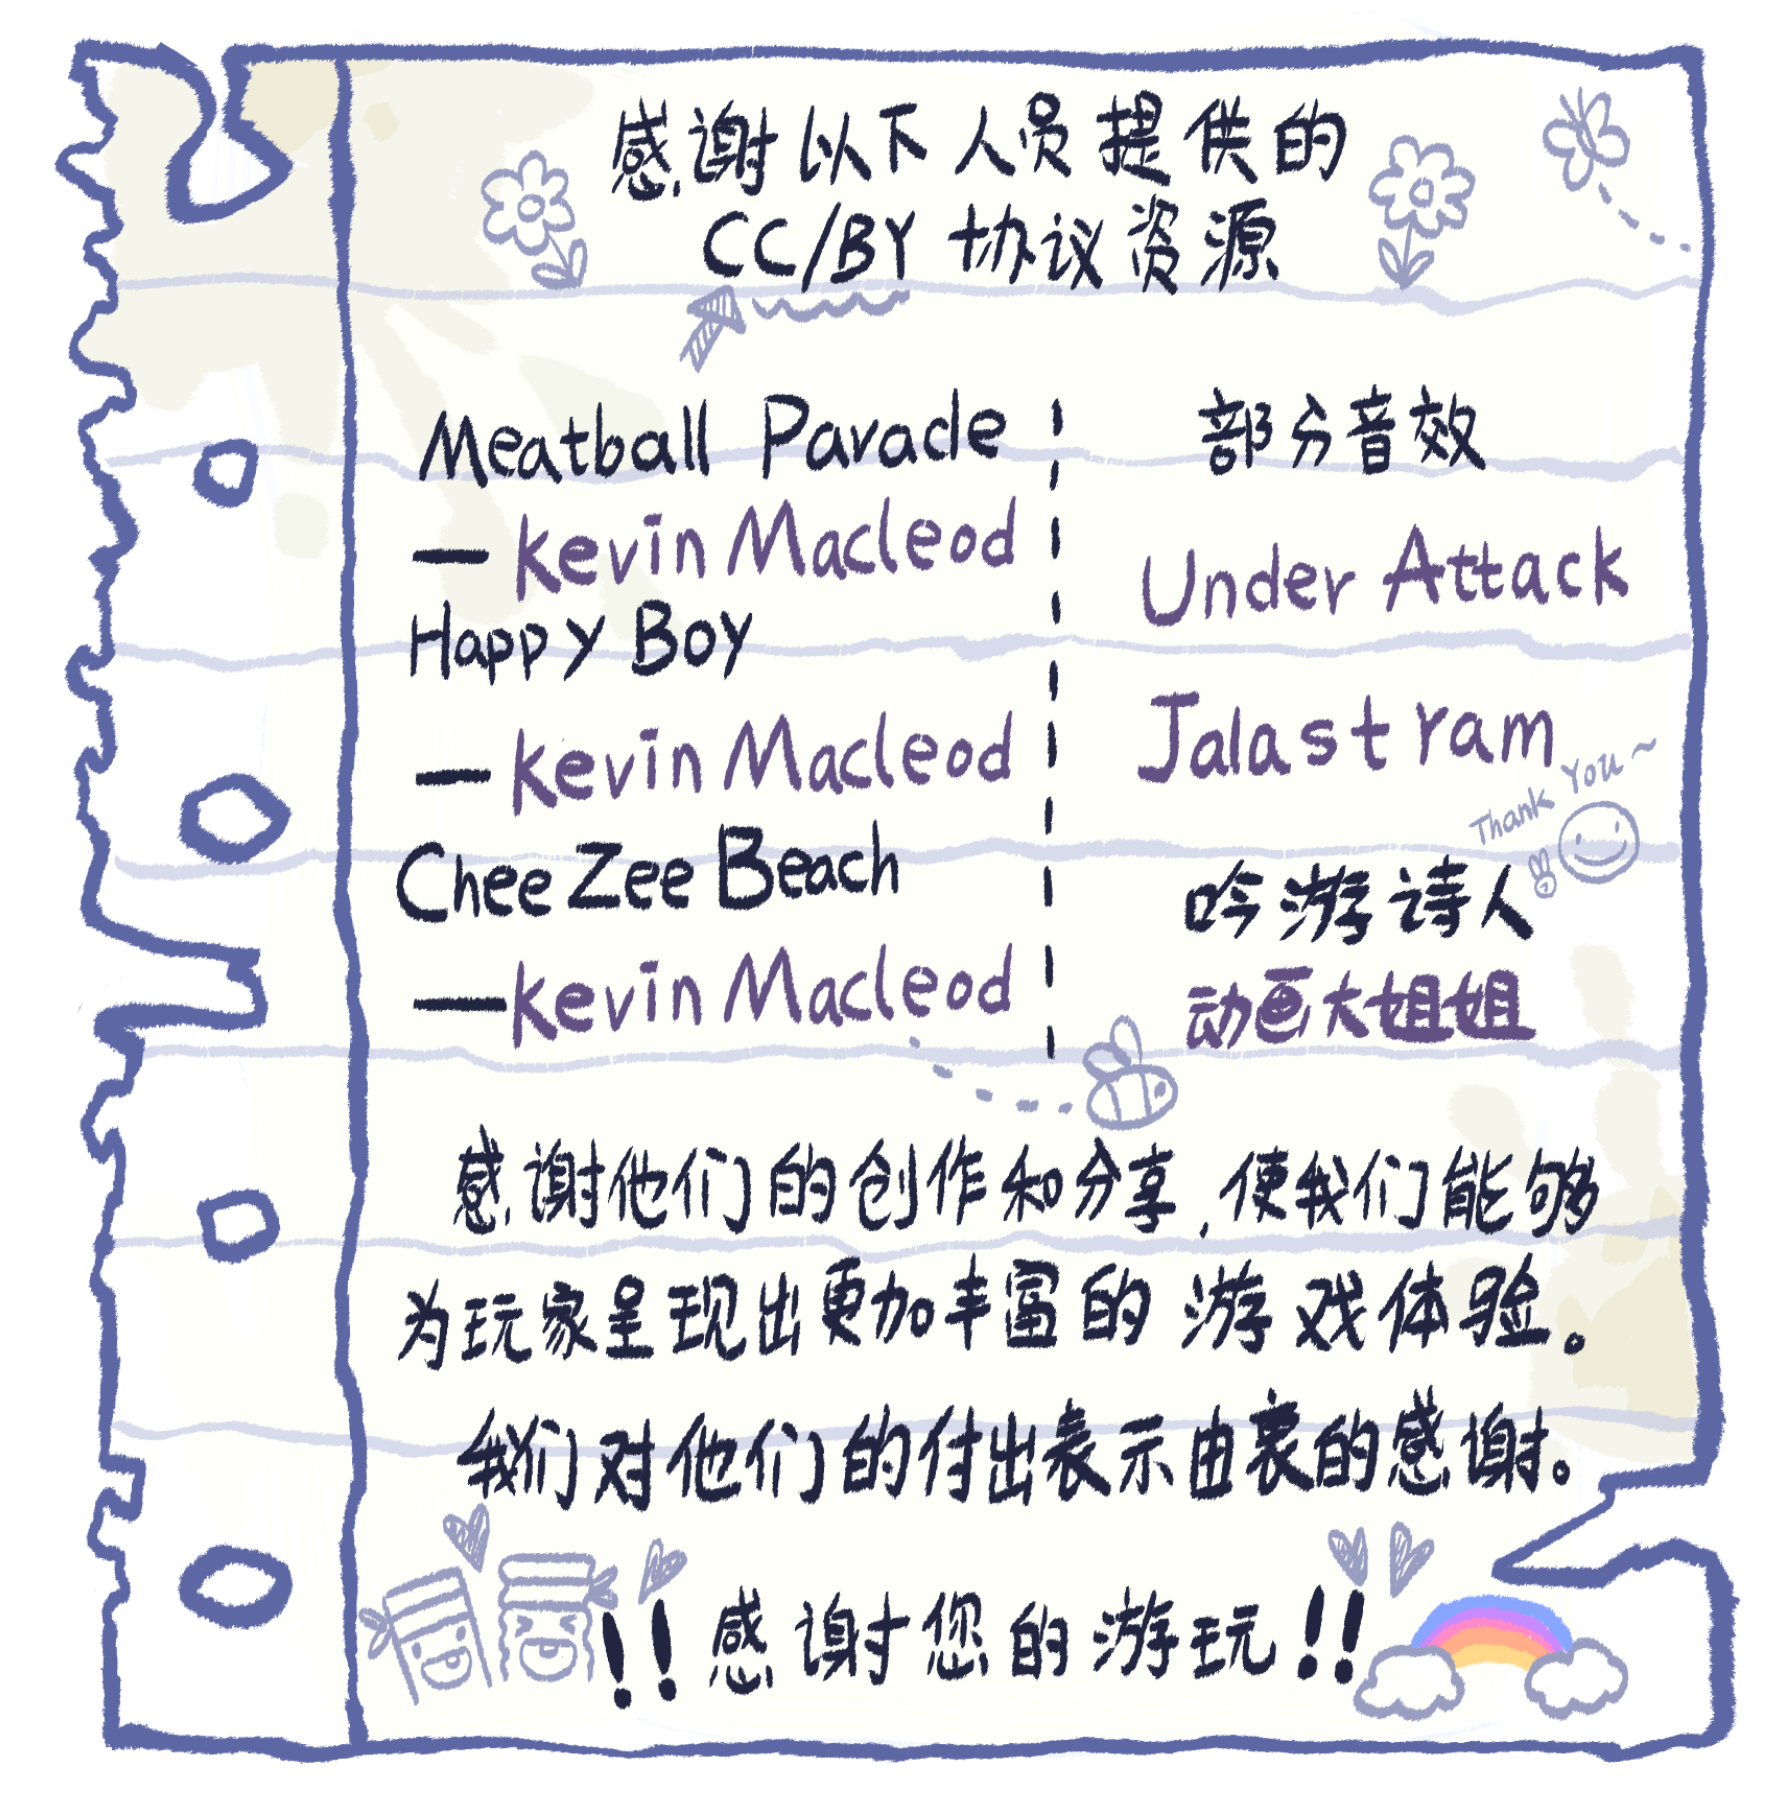 感谢以下人员提供的
CC/BY 协议资源
Meatball Parade
— Kevin Macleod
Happy Boy
— Kevin Macleod
Chee Zee Beach
— Kevin Macleod
部分音效
Under Attack
Jalastram
Thank You~
吟游诗人
动画大姐姐
感谢他们的创作和分享,使我们能够
为玩家呈现出更加丰富的游戏体验。
我们对他们的付出表示由衷的感谢。
!!感谢您的游玩!!